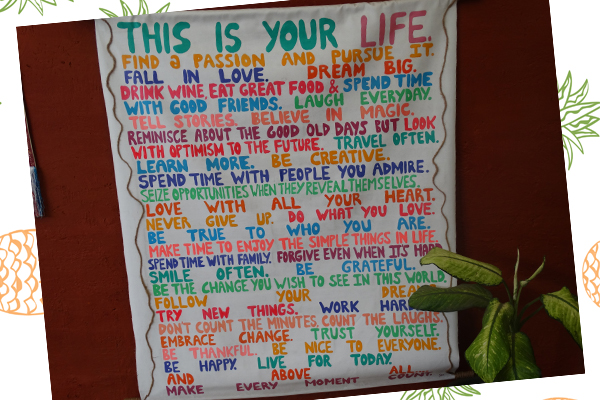 THIS IS YOUR LIFE.
FIND a PASSION AND PURSUE IT.
FALL IN LOVE. DREAM BIG.
DRINK WINE, EAT GREAT FOOD & SPEND TIME
WITH GOOD FRIENDS. LAUGH EVERYDAY.
TELL STORIES. BELIEVE IN MAGIC.
REMINISCE ABOUT THE GOOD OLD DAYS BUT LOOK
WITH OPTIMISM TO THE FUTURE. TRAVEL OFTEN.
LEARN MORE. BE CREATIVE.
SPEND TIME WITH PEOPLE YOU ADMIRE.
SEIZE OPPORTUNITIES WHEN THEY REVEAL THEMSELVES.
LOVE WITH ALL YOUR HEART.
NEVER GIVE UP. DO WHAT YOU LOVE.
BE TRUE TO WHO YOU ARE.
MAKE TIME TO ENJOY THE SIMPLE THINGS IN LIFE.
SPEND TIME WITH FAMILY. FORGIVE EVEN WHEN IT'S HARD.
SMILE OFTEN. BE GRATEFUL.
BE THE CHANGE YOU WISH TO SEE IN THIS WORLD.
FOLLOW YOUR
TRY NEW THINGS. WORK
DON'T COUNT THE MINUTES, COUNT THE LAUGHS.
EMBRACE CHANGE. TRUST YOURSELF.
BE THANKFUL. BE NICE TO EVERYONE.
BE HAPPY. LIVE FOR TODAY.
AND ABOVE ALL
MAKE EVERY MOMENT COUNT.